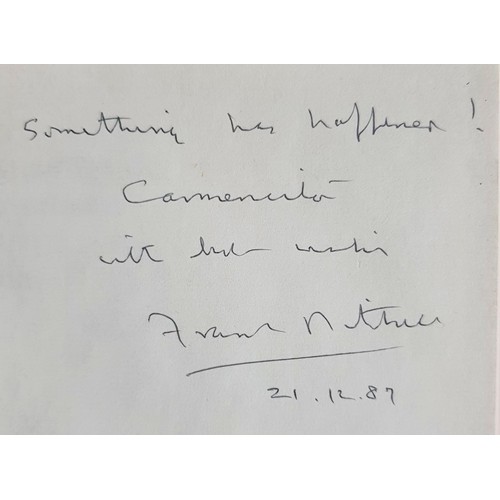 Something has happened!
Carmencita
with best wishes
Frank
21.12.87